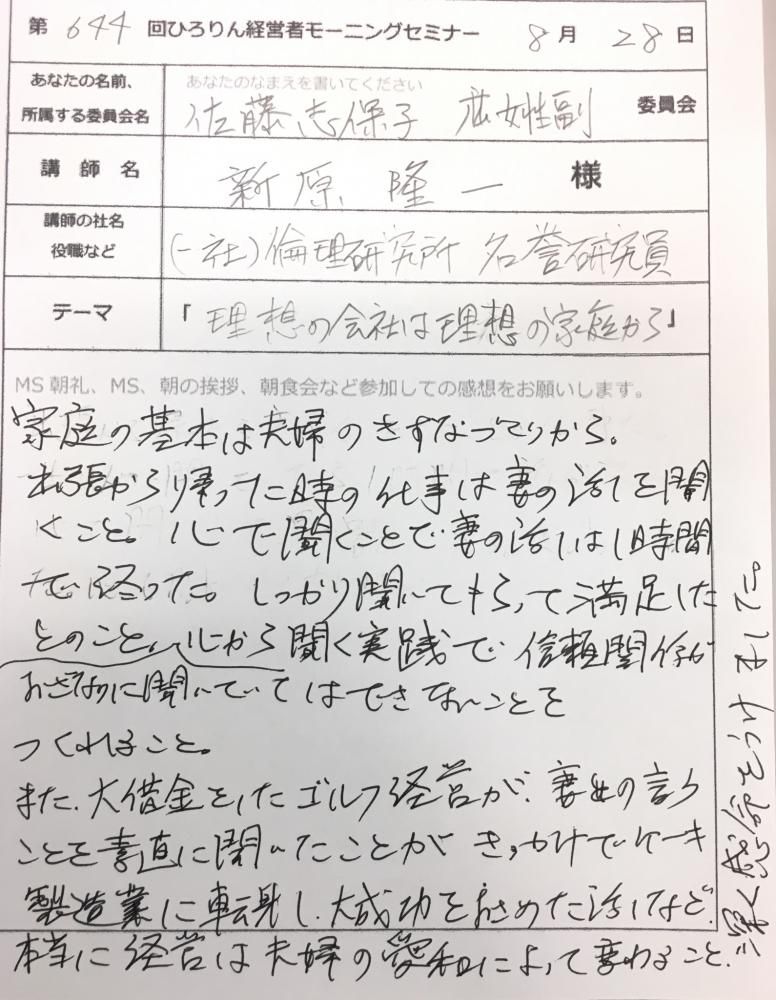 第 644 回ひろりん経営者モーニングセミナー 8 月 28 日
あなたの名前、
所属する委員会名
あなたのなまえを書いてください
佐藤志保子 女性副 委員会
講 師 名
新原 隆一 様
講師の社名
役職など
(一社)倫理研究所 名誉研究員
テーマ
「理想の会社は理想の家庭から」
MS 朝礼、MS、朝の挨拶、朝食会など参加しての感想をお願いします。
家庭の基本は夫婦のきずなづくりから。
出張から帰った時の仕事は妻の話しを聞
くこと。心で聞くことで妻の話しは1時間
で終った。しっかり聞いてもらって満足した
とのこと、心から聞く実践で信頼関係が
おざなりに聞いていてはできないことを
つくれること。
また、大借金をしたゴルフ経営が、妻女の言う
ことを素直に聞いたことがきっかけでケーキ
製造業に転身し、大成功をおさめた話しなど、
本当に経営は夫婦の愛和によって変わること、
深く感命をうけました。